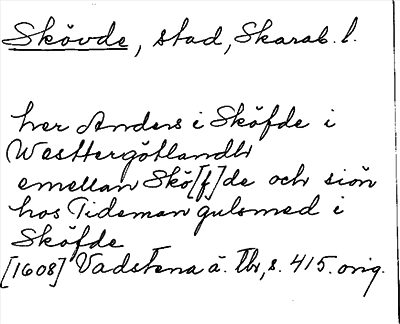 Skövde, stad, Skarab. l.
her Anders i Sköfde i
Westtergötlandh
emellan Skö[f]de och siön
hos Tideman gulsmed i
Sköfde
[1608] Vadstena ä. Tbr, s. 415. orig.